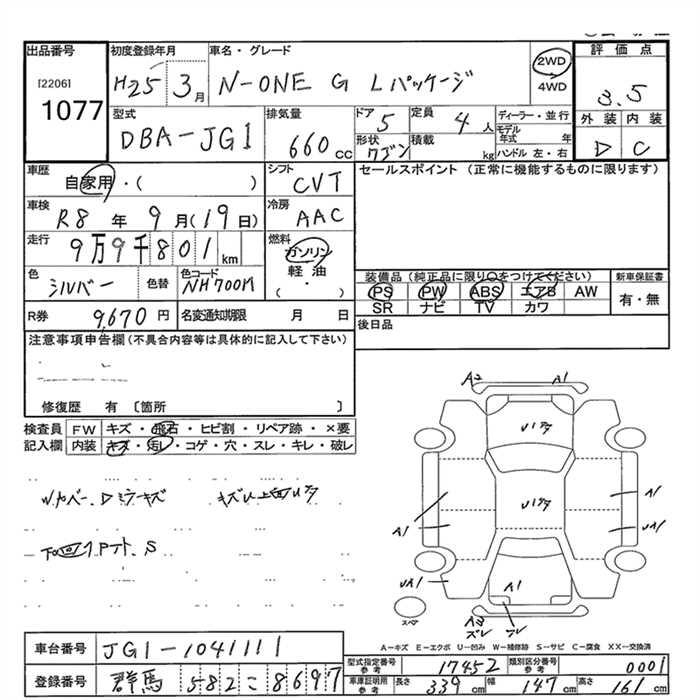 出品番号 初度登録年月 車名・グレード 評価点
[2206] 1077
H25 3月 N-ONE G Lパッケージ 2WD 4WD 3.5
外装 内装
D C
型式 DBA-JG1 排気量 660cc
ドア 5 定員 4人 ディーラー・並行
形状 ワゴン 積載 kg モデル年式 年
ハンドル 左・右
車歴 自家用・( ) シフト CVT
セールスポイント (正常に機能するものに限ります)
車検 R8年9月(19日) 冷房 AAC
走行 9万9千801km 燃料 ガソリン 軽油 ( ・ )
色 シルバー 色替 色コード NH700M
装備品(純正品に限り○をつけてください) 新車保証書
PS PW ABS エアB AW 有・無
SR ナビ TV カワ
R券 9,670円 名変通知期限 月 日
後日品
注意事項申告欄(不具合内容等は具体的に記入して下さい)
修復歴 有 〔箇所 〕
検査員 FW キズ・飛石・ヒビ割・リペア跡・×要
記入欄 内装 キズ・汚レ・コゲ・穴・スレ・キレ・破レ
Wカバー、Dミラーキズ
S
A2 A1
A1 A1
UA1
UA1 A1
スペア
A3 ズレ
A−キズ E−エクボ U−凹み W−補修跡 S−サビ C−腐食 XX−交換済
車台番号 JG1-1041111
型式指定番号 参考 17452 類別区分番号 参考 0001
登録番号 群馬 582 こ 8697
車庫証明用 参考 長さ 339cm 幅 147cm 高さ 161cm